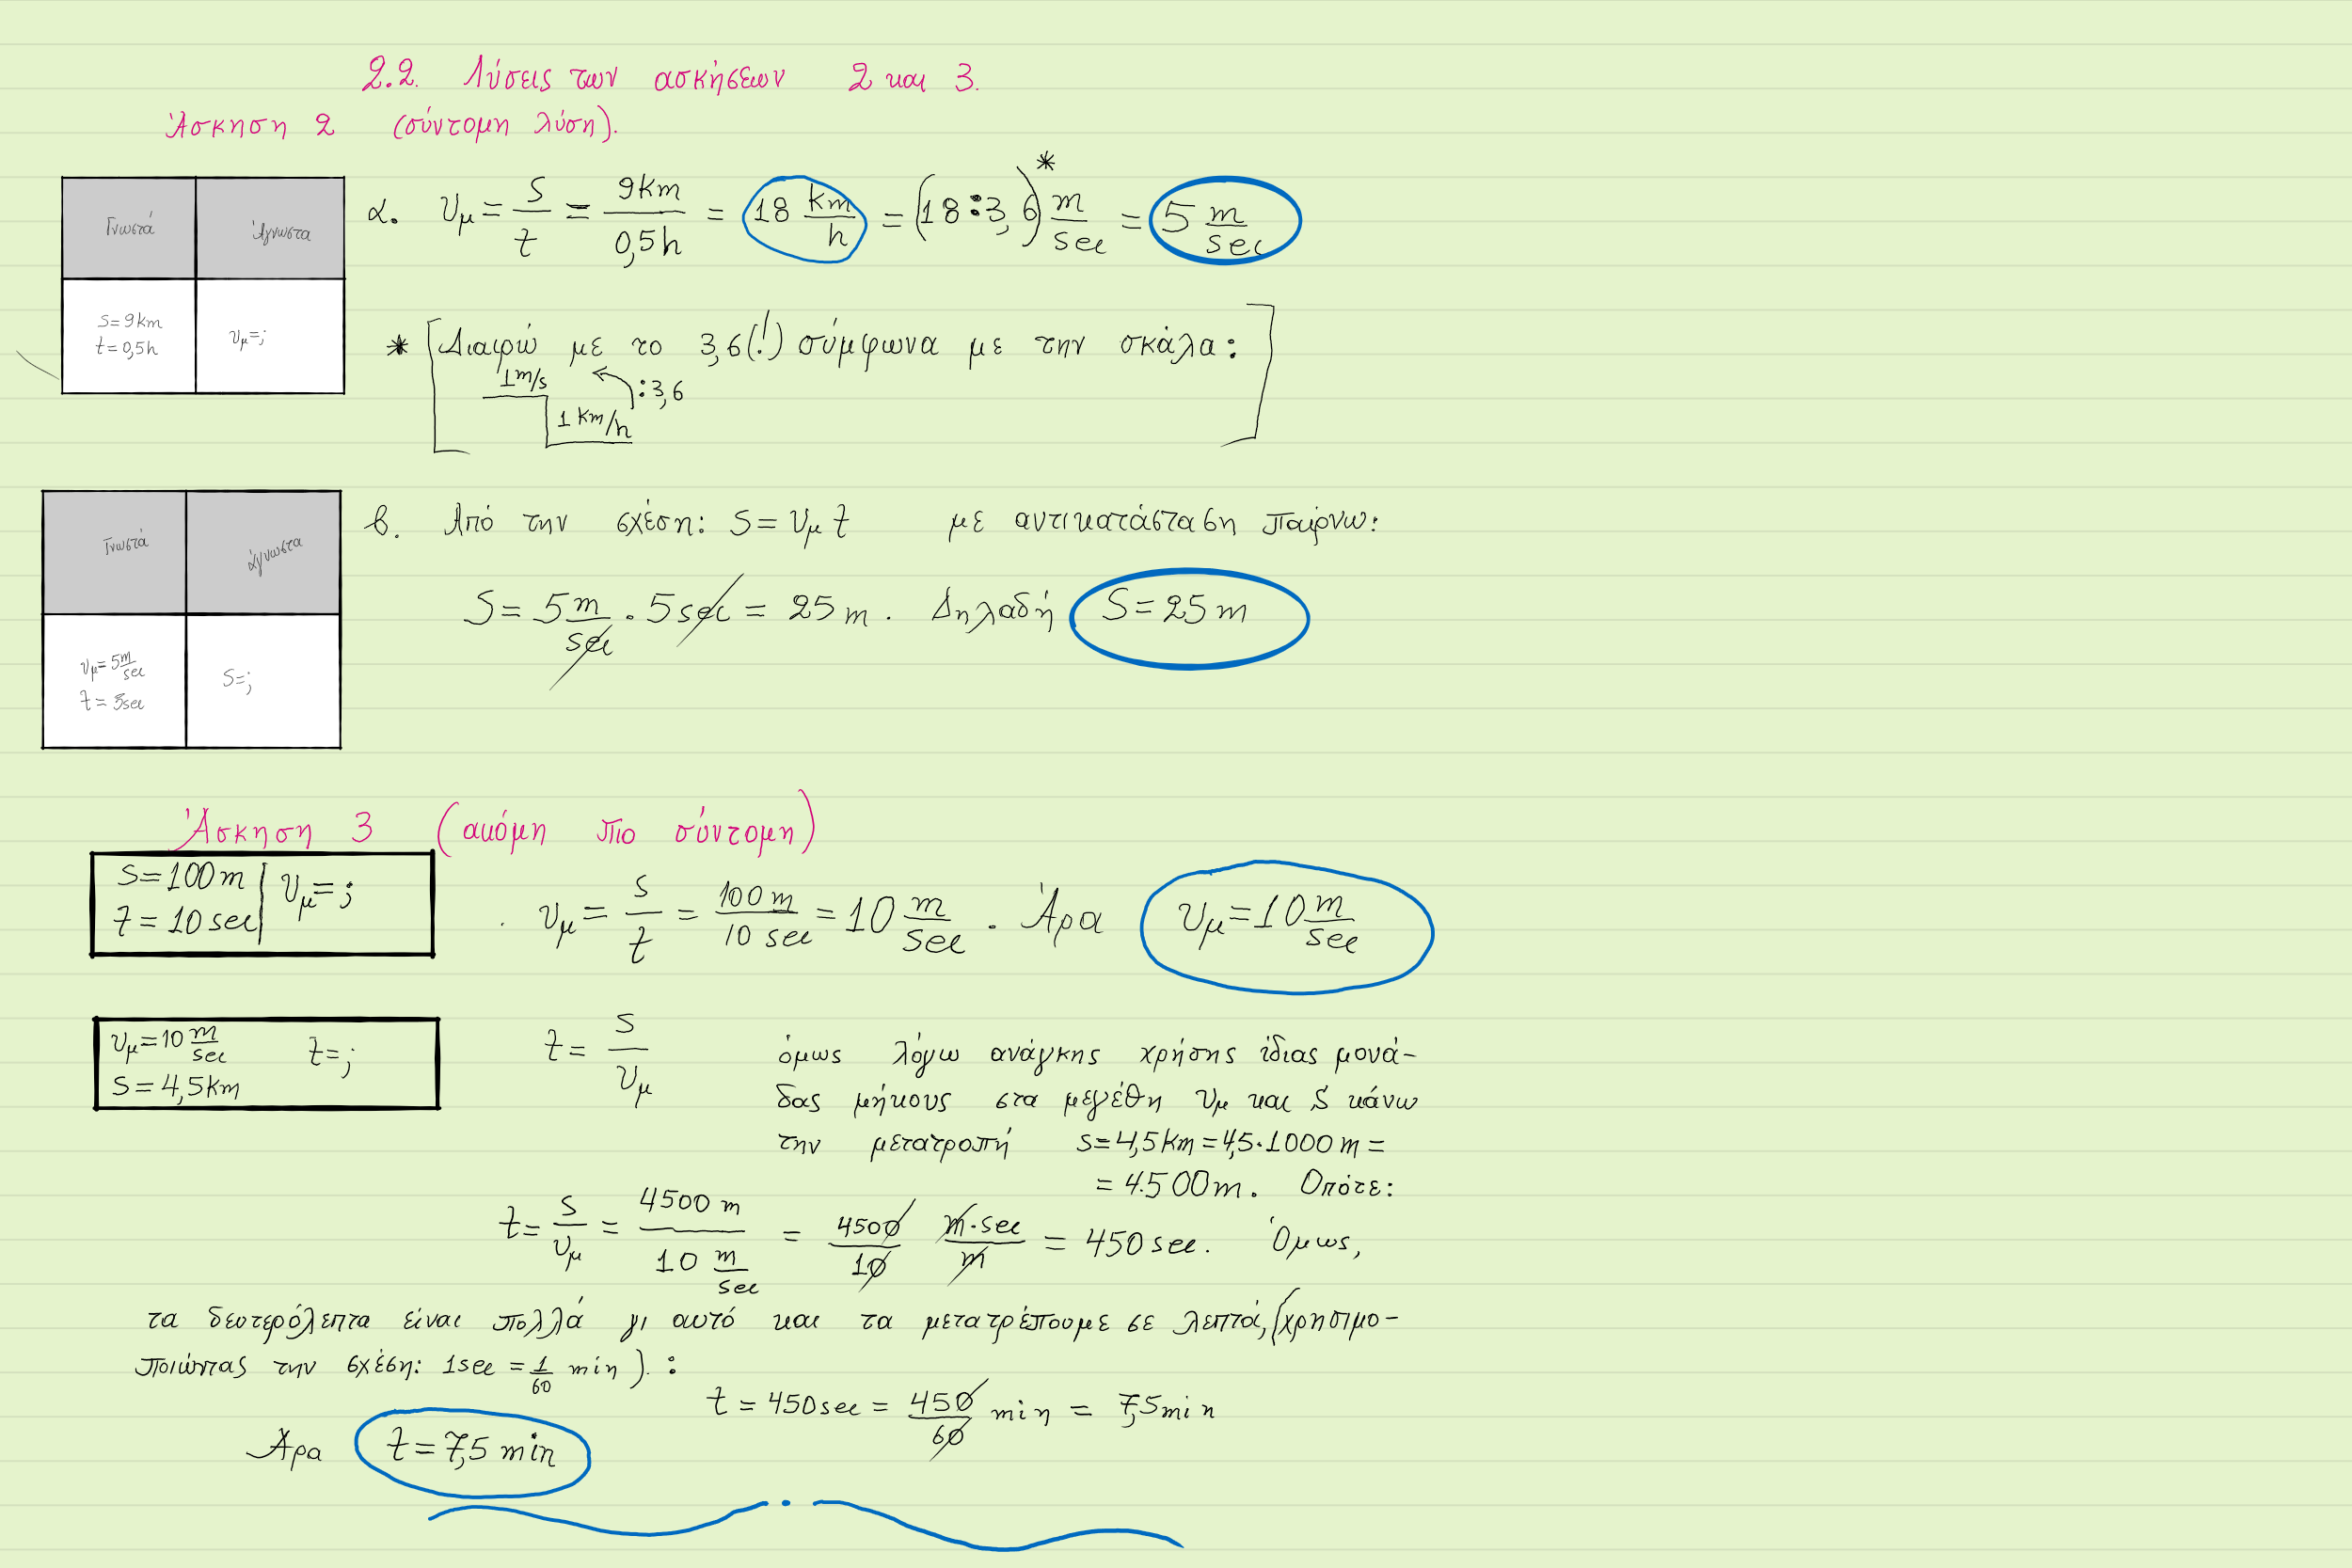 2.2. Λύσεις των ασκήσεων 2 και 3.
Άσκηση 2 (σύντομη λύση).
Γνωστά Άγνωστα
S=9km
t=0,5h
υμ=;
α. υμ = S/t = 9km/0,5h = 18 km/h = (18:3,6)* m/sec = 5 m/sec
* [Διαιρώ με το 3,6(!) σύμφωνα με την σκάλα:]
1 m/s
:3,6
1 km/h
Γνωστά άγνωστα
υμ=5 m/sec
t=5sec
S=;
β. Από την σχέση: S=υμ t με αντικατάσταση παίρνω:
S= 5 m/sec . 5sec = 25 m. Δηλαδή S=25 m
Άσκηση 3 (ακόμη πιο σύντομη)
S=100 m
t=10 sec
υμ=;
υμ = S/t = 100 m/10 sec = 10 m/sec. Άρα υμ=10 m/sec
υμ=10 m/sec
S=4,5km
t=;
t= S/υμ
όμως λόγω ανάγκης χρήσης ίδιας μονά-
δας μήκους στα μεγέθη υμ και S κάνω
την μετατροπή S=4,5km=4,5·1000 m=
= 4.500m. Οπότε:
t= S/υμ = 4500 m/10 m/sec = 4500/10 m·sec/m = 450 sec. Όμως,
τα δευτερόλεπτα είναι πολλά γι αυτό και τα μετατρέπουμε σε λεπτά, (χρησιμο-
ποιώντας την σχέση: 1sec = 1/60 min ). :
t = 450sec = 450/60 min = 7,5min
Άρα t=7,5 min